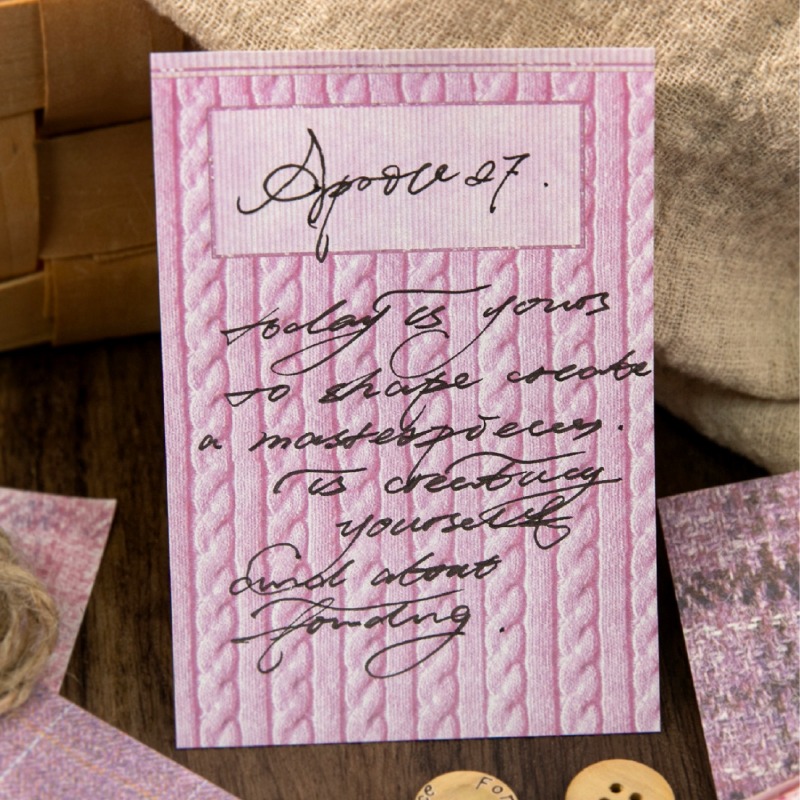 27.
today is yours
to shape create
a masterpiece.
is creating
yourself
and about
finding.
Fo